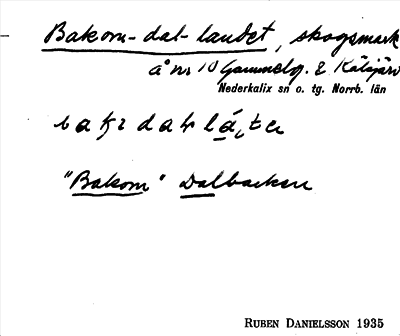 Bakom-dal-landet, skogsmark
å nr 10 Gammelg. 2 Kälsjärv
Nederkalix sn o. tg. Norrb. län
"Bakom" Dalbacken
RUBEN DANIELSSON 1935